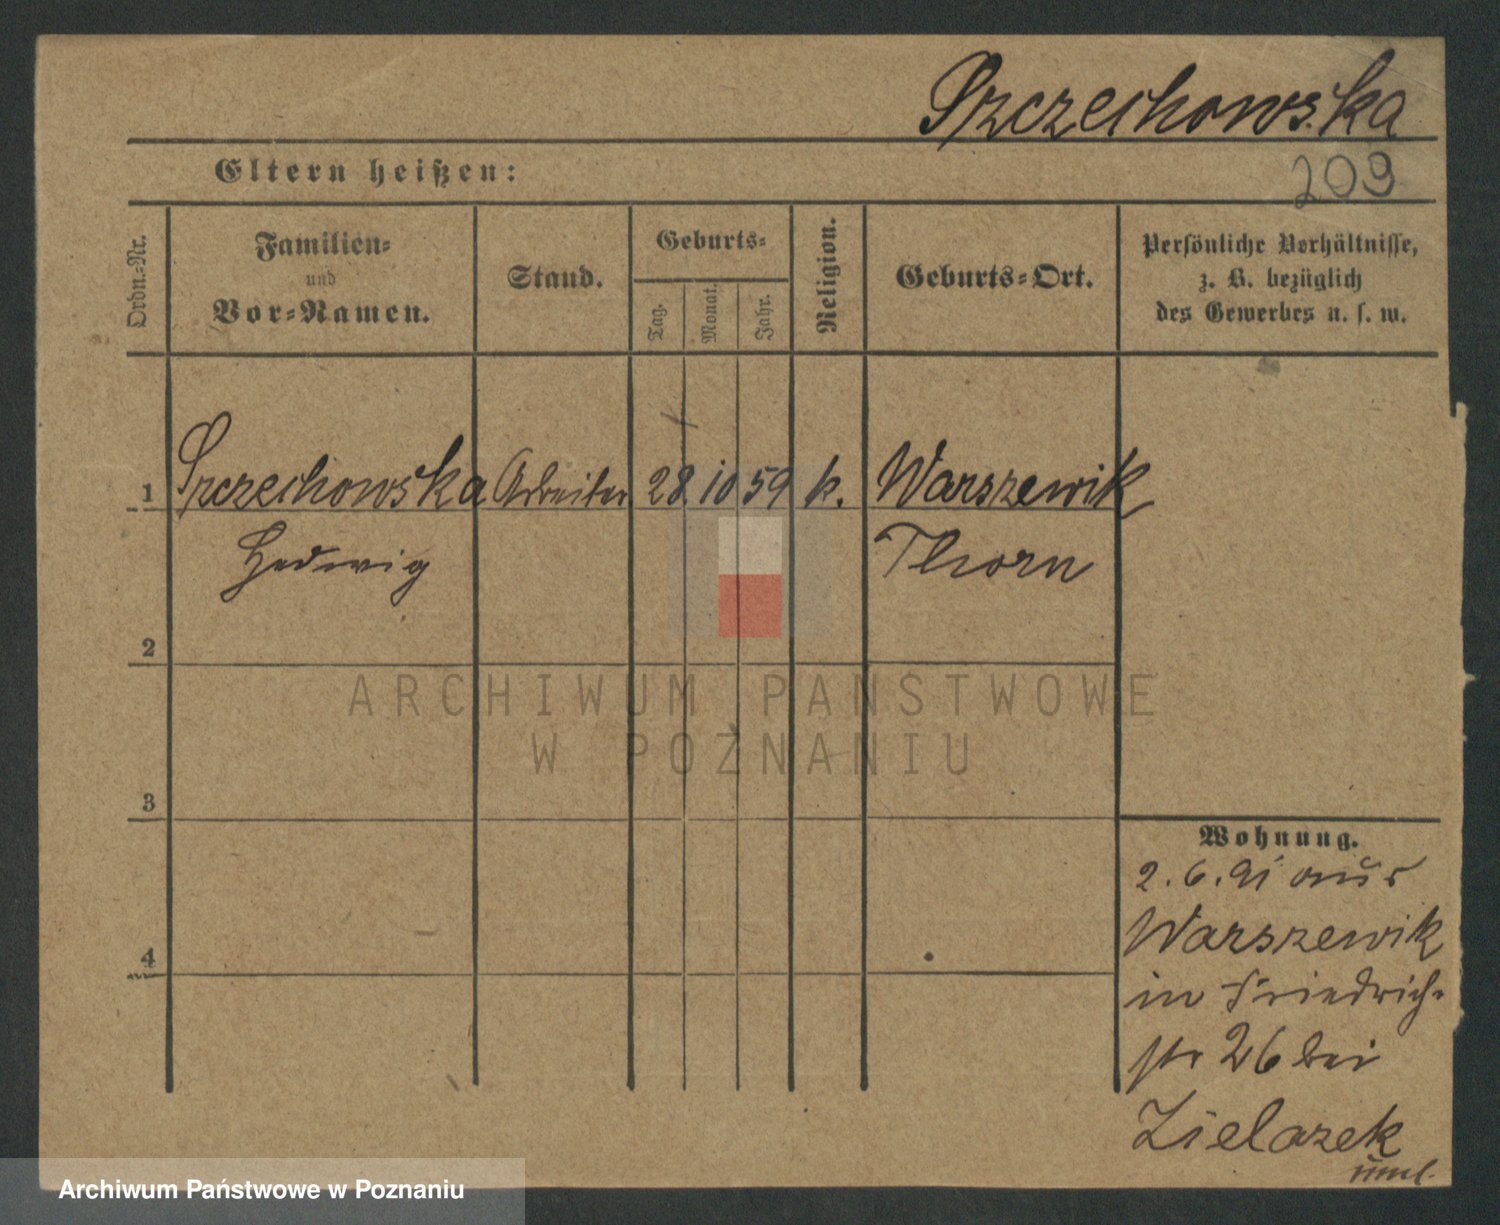 Szczechowska
Eltern heißen:
209
Ordn.=Nr.
Familien=
und
Vor=Namen.
Stand.
Geburts=
Tag.
Monat.
Jahr.
Religion.
Geburts=Ort.
Persönliche Verhältnisse,
z. B. bezüglich
des Gewerbes u. s. w.
1 Szczechowska Arbeiter 28 10 59 k. Warszewik
Hedwig Thorn
2
ARCHIWUM PAŃSTWOWE
W POZNANIU
3
Wohnung.
2. 6. 91 aus
Warszewik
4
in Friedrich=
str 26 bei
Zielazek
Archiwum Państwowe w Poznaniu